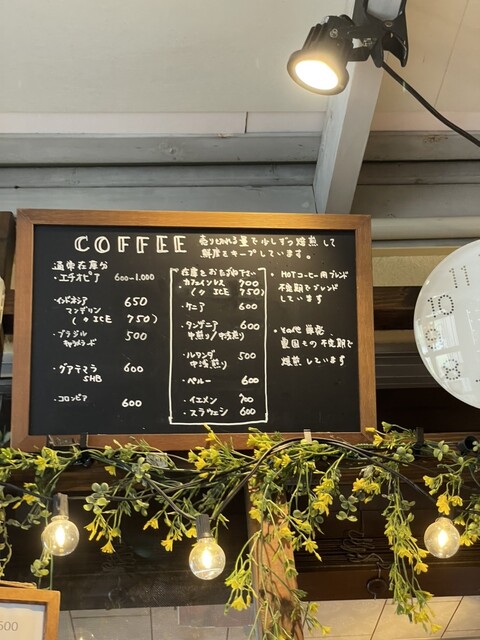 COFFEE
売り切れる量で少しずつ焙煎して
鮮度をキープしています。
通常在庫分
・エチオピア 600-1.000
・インドネシア 650
マンデリン
(〃 ICE 750)
・ブラジル 500
・グアテマラ 600
SHB
・コロンビア 600
在庫をおたずね下さい
・カフェインレス 700
(〃 ICE 750)
・ケニア 600
・タンザニア 600
中煎り/中深煎り
・ルワンダ 500
中深煎り
・ペルー 600
・イエメン 700
・スラウェシ 600
・HOTコーヒー用ブレンド
不定期でブレンド
しています
不定期で
焙煎しています
11
10
9
8
600